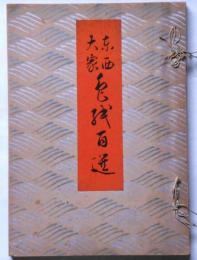 東西
大家
色紙百選